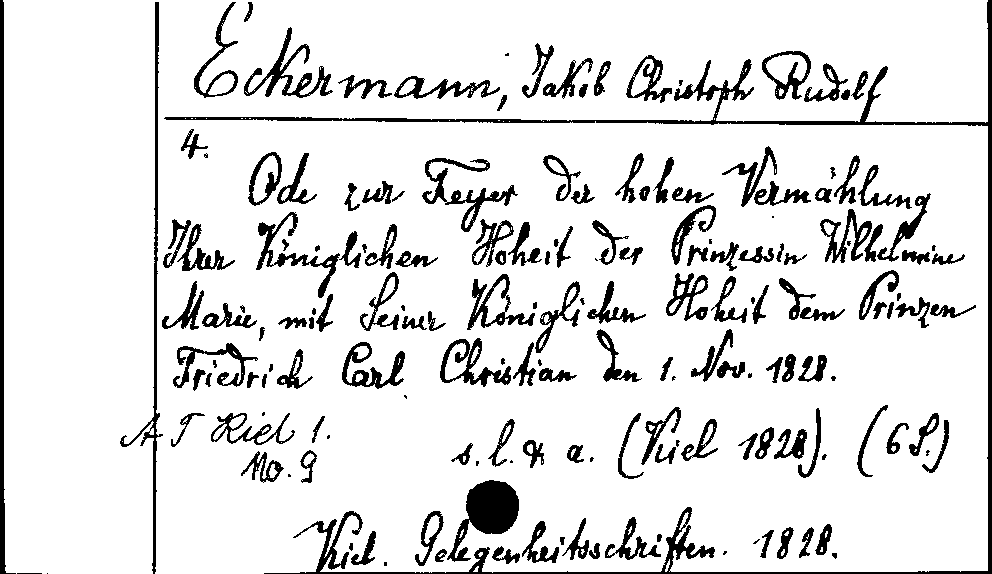 Eckermann, Jakob Christoph Rudolf
4.
Ode zur Feyer der hohen Vermählung
Ihrer Königlichen Hoheit der Prinzessin Wilhelmine
Marie, mit Seiner Königlichen Hoheit dem Prinzen
Friedrich Carl Christian den 1. Nov. 1828.
A T Kiel 1.
No. 9
s. l. & a. (Kiel 1828). (6 S.)
Kiel. Gelegenheitsschriften. 1828.